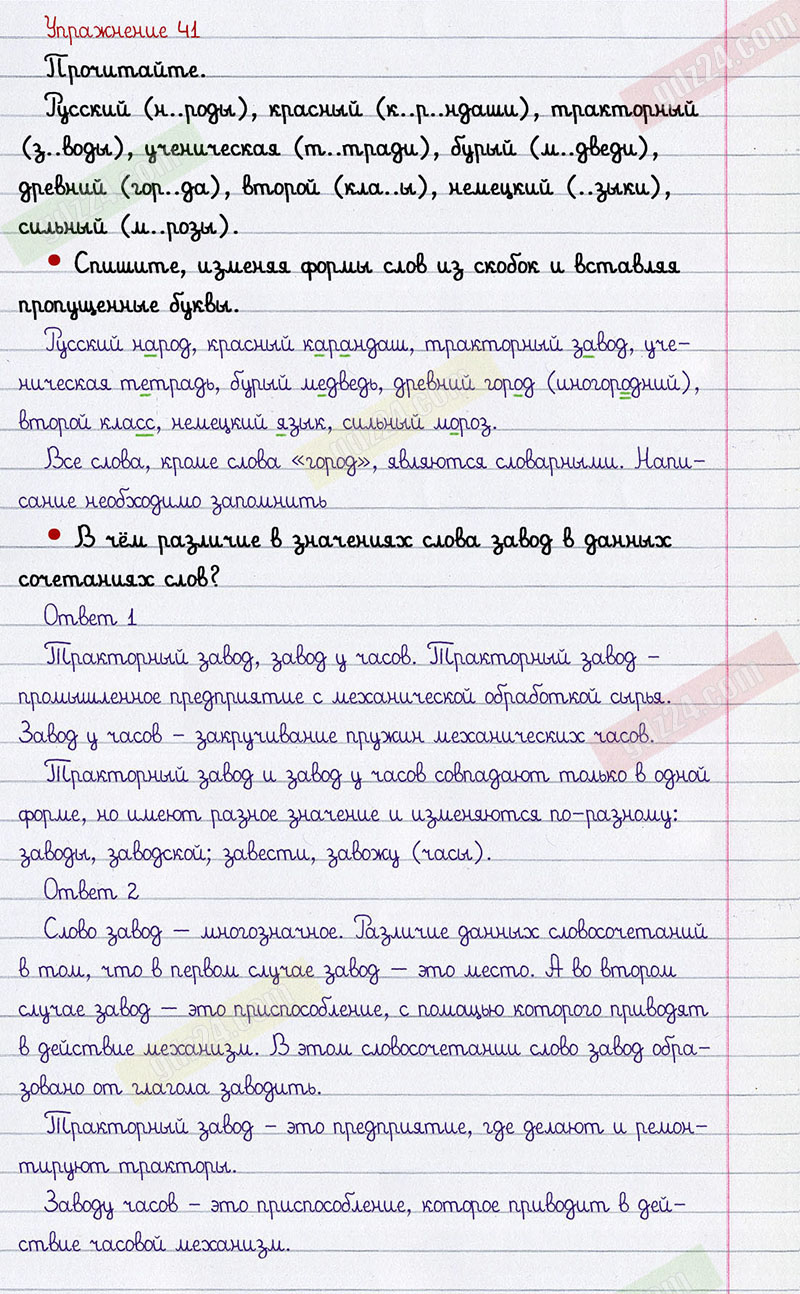 Упражнение 41
Прочитайте.
Русский (н..роды), красный (к..р..ндаши), тракторный
(з..воды), ученическая (т..тради), бурый (м..дведи),
древний (гор..да), второй (кла..ы), немецкий (..зыки),
сильный (м..розы).
• Спишите, изменяя формы слов из скобок и вставляя
пропущенные буквы.
Русский народ, красный карандаш, тракторный завод, уче-
ническая тетрадь, бурый медведь, древний город (иногородний),
второй класс, немецкий язык, сильный мороз.
Все слова, кроме слова «город», являются словарными. Напи-
сание необходимо запомнить
• В чём различие в значениях слова завод в данных
сочетаниях слов?
Ответ 1
Тракторный завод, завод у часов. Тракторный завод –
промышленное предприятие с механической обработкой сырья.
Завод у часов – закручивание пружин механических часов.
Тракторный завод и завод у часов совпадают только в одной
форме, но имеют разное значение и изменяются по-разному:
заводы, заводской; завести, завожу (часы).
Ответ 2
Слово завод — многозначное. Различие данных словосочетаний
в том, что в первом случае завод — это место. А во втором
случае завод — это приспособление, с помощью которого приводят
в действие механизм. В этом словосочетании слово завод обра-
зовано от глагола заводить.
Тракторный завод – это предприятие, где делают и ремон-
тируют тракторы.
Заводу часов – это приспособление, которое приводит в дей-
ствие часовой механизм.
gdz24.com
gdz24.com
gdz24.com
gdz24.com
gdz24.com
gdz24.com